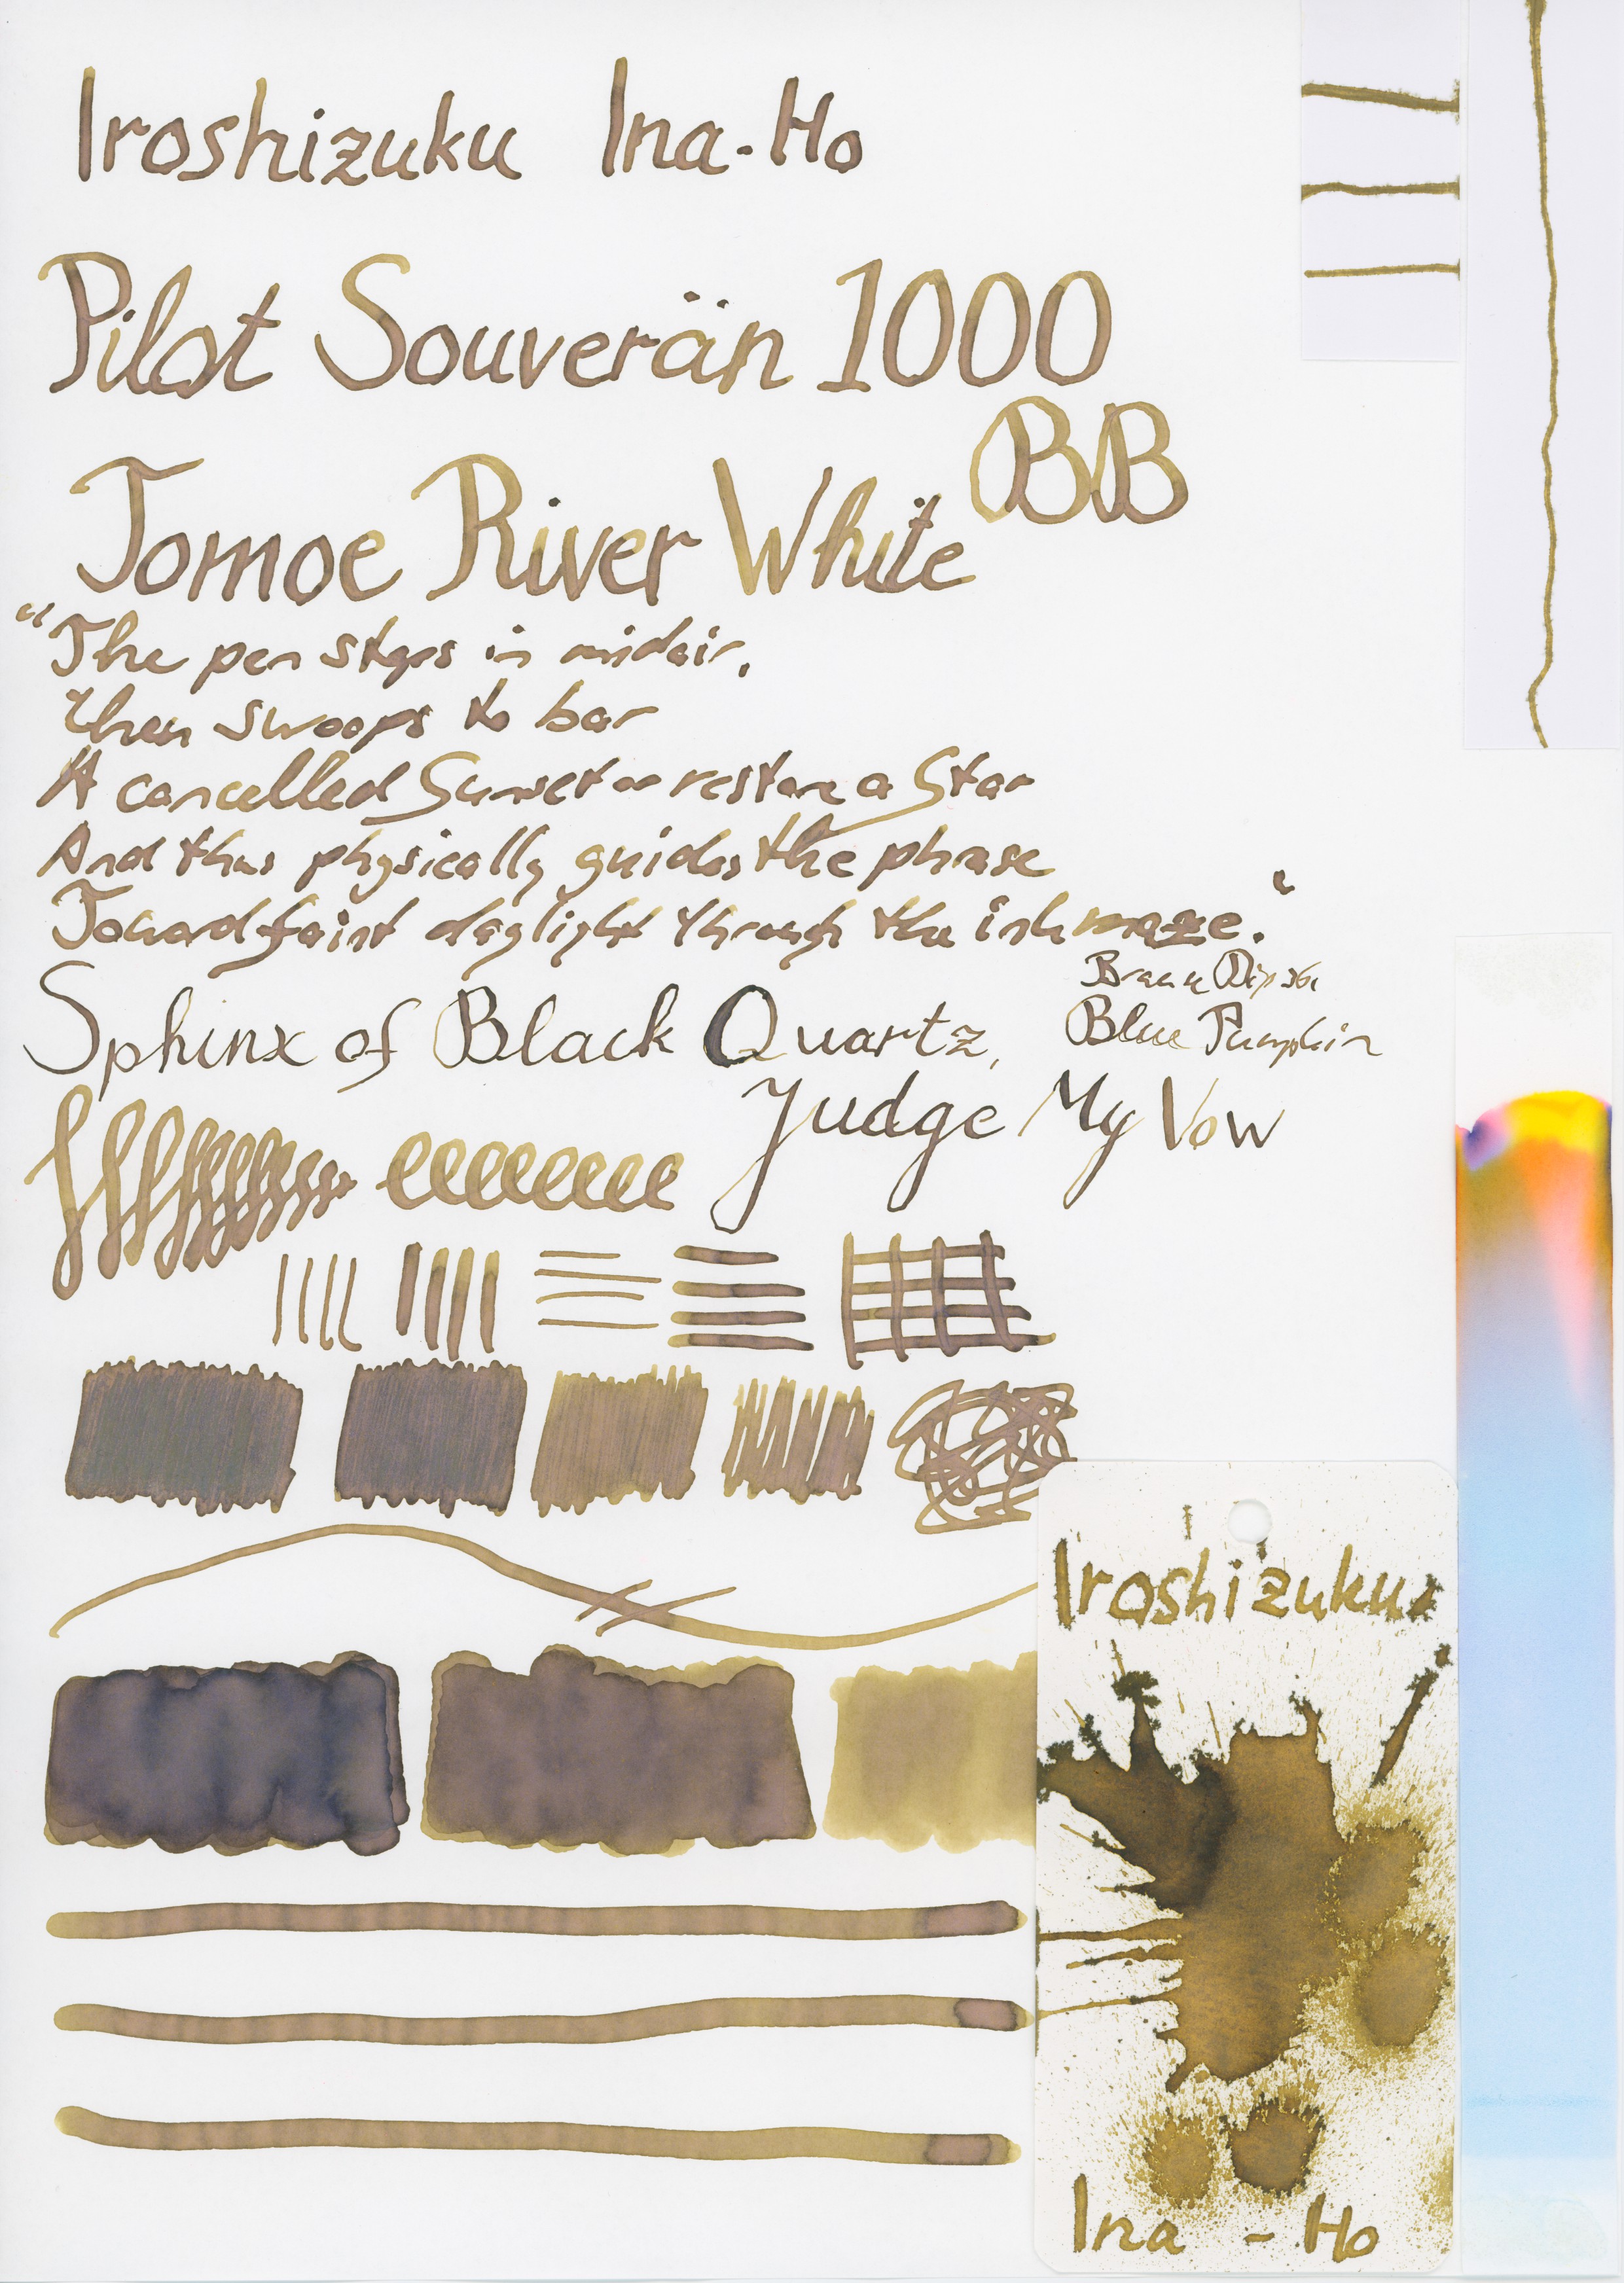 Iroshizuku Ina-Ho
Pilot Souverän 1000
BB
Tomoe River White
"The pen stops in midair,
then swoops to bar
A cancelled Sunset or restore a Star
And thus physically guides the phrase
Toward faint daylight through the ink maze."
Blue Pumpkin
Sphinx of Black Quartz,
Judge My Vow
Iroshizuku
Ina - Ho